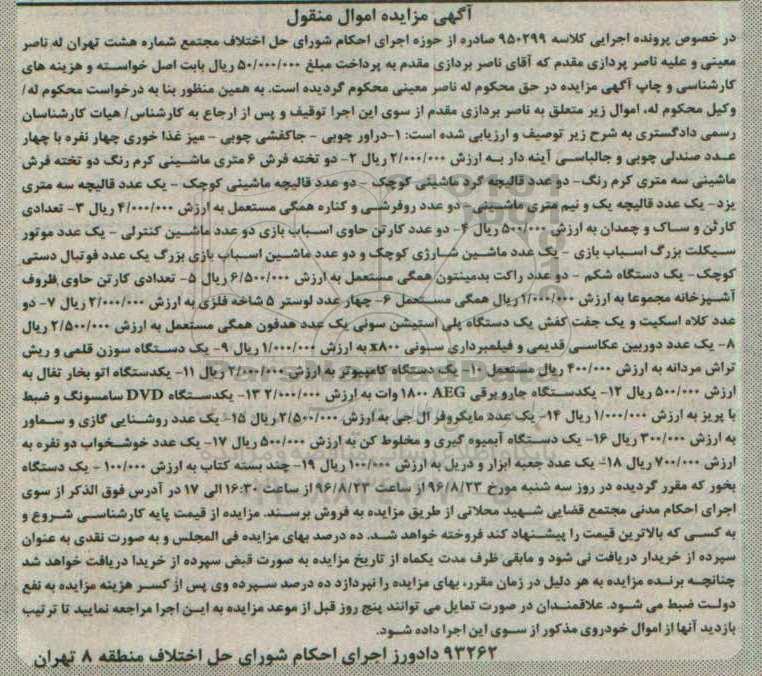 آگهی مزایده اموال منقول
در خصوص پرونده اجرایی کلاسه ۹۵۰۲۹۹ صادره از حوزه اجرای احکام شورای حل اختلاف مجتمع شماره هشت تهران له ناصر
معینی و علیه ناصر پردازی مقدم که آقای ناصر بردازی مقدم به پرداخت مبلغ ۵۰/۰۰۰/۰۰۰ ریال بابت اصل خواسته و هزینه های
کارشناسی و چاپ آگهی مزایده در حق محکوم له ناصر معینی محکوم گردیده است. به همین منظور بنا به درخواست محکوم له/
وکیل محکوم له، اموال زیر متعلق به ناصر بردازی مقدم از سوی این اجرا توقیف و پس از ارجاع به کارشناس/ هیات کارشناسان
رسمی دادگستری به شرح زیر توصیف و ارزیابی شده است: ۱-دراور چوبی - جاکفشی چوبی - میز غذا خوری چهار نفره با چهار
عدد صندلی چوبی و جالباسی آینه دار به ارزش ۲/۰۰۰/۰۰۰ ریال ۲- دو تخته فرش ۶ متری ماشینی کرم رنگ دو تخته فرش
ماشینی سه متری کرم رنگ- دو عدد قالیچه گرد ماشینی کوچک - دو عدد قالیچه ماشینی کوچک - یک عدد قالیچه سه متری
یزد- یک عدد قالیچه یک و نیم متری ماشینی - دو عدد روفرشی و کناره همگی مستعمل به ارزش ۴/۰۰۰/۰۰۰ ریال ۳- تعدادی
کارتن و ساک و چمدان به ارزش ۵۰۰/۰۰۰ ریال ۴- دو عدد کارتن حاوی اسباب بازی دو عدد ماشین کنترلی - یک عدد موتور
سیکلت بزرگ اسباب بازی - یک عدد ماشین شارژی کوچک و دو عدد ماشین اسباب بازی بزرگ یک عدد فوتبال دستی
کوچک- یک دستگاه شکم - دو عدد راکت بدمینتون همگی مستعمل به ارزش ۶/۵۰۰/۰۰۰ ریال ۵- تعدادی کارتن حاوی ظروف
آشپزخانه مجموعا به ارزش ۱/۰۰۰/۰۰۰ ریال همگی مستعمل ۶- چهار عدد لوستر ۵ شاخه فلزی به ارزش ۲/۰۰۰/۰۰۰ ریال ۷- دو
عدد کلاه اسکیت و یک جفت کفش یک دستگاه پلی استیشن سونی یک عدد هدفون همگی مستعمل به ارزش ۲/۵۰۰/۰۰۰ ریال
۸- یک عدد دوربین عکاسی قدیمی و فیلمبرداری سونی x۸۰۰ به ارزش ۱/۰۰۰/۰۰۰ ریال ۹- یک دستگاه سوزن قلمی و ریش
تراش مردانه به ارزش ۴۰۰/۰۰۰ ریال مستعمل ۱۰- یک دستگاه کامپیوتر به ارزش ۲/۰۰۰/۰۰۰ ریال ۱۱- یکدستگاه اتو بخار تفال به
ارزش ۵۰۰/۰۰۰ ریال ۱۲- یکدستگاه جارو برقی AEG ۱۸۰۰ وات به ارزش ۲/۰۰۰/۰۰۰ ۱۳- یکدستگاه DVD سامسونگ و ضبط
با پریز به ارزش ۱/۰۰۰/۰۰۰ ریال ۱۴- یک عدد مایکروفر ال جی به ارزش ۲/۵۰۰/۰۰۰ ریال ۱۵- یک عدد روشنایی گازی و سماور
به ارزش ۳۰۰/۰۰۰ ریال ۱۶- یک دستگاه آبمیوه گیری و مخلوط کن به ارزش ۵۰۰/۰۰۰ ریال ۱۷- یک عدد خوشخواب دو نفره به
ارزش ۷۰۰/۰۰۰ ریال ۱۸- یک عدد جعبه ابزار و دریل به ارزش ۱۰۰/۰۰۰ ریال ۱۹- چند بسته کتاب به ارزش ۱۰۰/۰۰۰ - یک دستگاه
بخور که مقرر گردیده در روز سه شنبه مورخ ۹۶/۸/۲۳ از ساعت ۹۶/۸/۲۳ از ساعت ۱۶:۳۰ الی ۱۷ در آدرس فوق الذکر از سوی
اجرای احکام مدنی مجتمع قضایی شهید محلاتی از طریق مزایده به فروش برسند. مزایده از قیمت پایه کارشناسی شروع و
به کسی که بالاترین قیمت را پیشنهاد کند فروخته خواهد شد. ده درصد بهای مزایده فی المجلس و به صورت نقدی به عنوان
سپرده از خریدار دریافت نی شود و مابقی ظرف مدت یکماه از تاریخ مزایده به صورت قبض سپرده از خریدا دریافت خواهد شد
چنانچه برنده مزایده به هر دلیل در زمان مقرر، بهای مزایده را نپردازد ده درصد سپرده وی پس از کسر هزینه مزایده به نفع
دولت ضبط می شود. علاقمندان در صورت تمایل می توانند پنج روز قبل از موعد مزایده به این اجرا مراجعه نمایید تا ترتیب
بازدید آنها از اموال خودروی مذکور از سوی این اجرا داده شود.
۹۳۲۶۲ دادورز اجرای احکام شورای حل اختلاف منطقه ۸ تهران